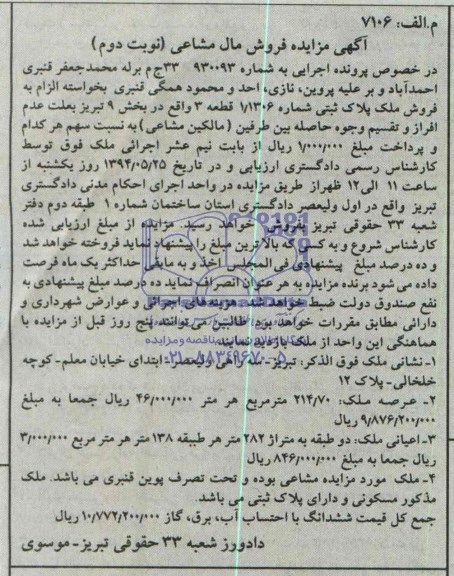 م.الف: ۷۱۰۶
آگهی مزایده فروش مال مشاعی (نوبت دوم)
در خصوص پرونده اجرایی به شماره ۹۳۰۰۹۳ ۳۳ج‌م برله محمدجعفر قنبری
احمدآباد و بر علیه پروین، نازی، احد و محمود همگی قنبری بخواسته الزام به
فروش ملک پلاک ثبتی شماره ۱/۱۳۰۶ قطعه ۳ واقع در بخش ۹ تبریز بعلت عدم
افراز و تقسیم وجوه حاصله بین طرفین (مالکین مشاعی) به نسبت سهم هر کدام
و پرداخت مبلغ ۱/۰۰۰/۰۰۰ ریال از بابت نیم عشر اجرائی ملک فوق توسط
کارشناس رسمی دادگستری ارزیابی و در تاریخ ۱۳۹۴/۰۵/۲۵ روز یکشنبه از
ساعت ۱۱ الی ۱۲ ظهراز طریق مزایده در واحد اجرای احکام مدنی دادگستری
تبریز واقع در اول ولیعصر دادگستری استان ساختمان شماره ۱ طبقه دوم دفتر
شعبه ۳۳ حقوقی تبریز بفروش خواهد رسید. مزایده از مبلغ ارزیابی شده
کارشناس شروع و به کسی که بالاترین مبلغ را پیشنهاد نماید فروخته خواهد شد
و ده درصد مبلغ پیشنهادی فی المجلس اخذ و به مابقی حداکثر یک ماه فرصت
داده می شود برنده مزایده به هر عنوان انصراف نماید ده درصد مبلغ پیشنهادی به
نفع صندوق دولت ضبط خواهد شد. هزینه های اجرائی و عوارض شهرداری و
دارائی مطابق مقررات خواهد بود. طالبین می توانند پنج روز قبل از مزایده با
هماهنگی این واحد از ملک بازدید نمایند.
۱-نشانی ملک فوق الذکر: تبریز-سه راهی ولیعصر-ابتدای خیابان معلم-کوچه
خلخالی-پلاک ۱۲
۲-عرصه ملک: ۲۱۴/۷۰ مترمربع هر متر ۴۶/۰۰۰/۰۰۰ ریال جمعا به مبلغ
۹/۸۷۶/۲۰۰/۰۰۰ ریال
۳-اعیانی ملک: دو طبقه به متراژ ۲۸۲ متر هر طبیقه ۱۳۸ متر هر متر مربع ۳/۰۰۰/۰۰۰
ریال جمعا به مبلغ ۸۴۶/۰۰۰/۰۰۰ ریال
۴-ملک مورد مزایده مشاعی بوده و تحت تصرف پوین قنبری می باشد. ملک
مذکور مسکونی و دارای پلاک ثبتی می باشد.
جمع کل قیمت ششدانگ با احتساب آب، برق، گاز ۱۰/۷۷۲/۲۰۰/۰۰۰ ریال
دادورز شعبه ۳۳ حقوقی تبریز-موسوی